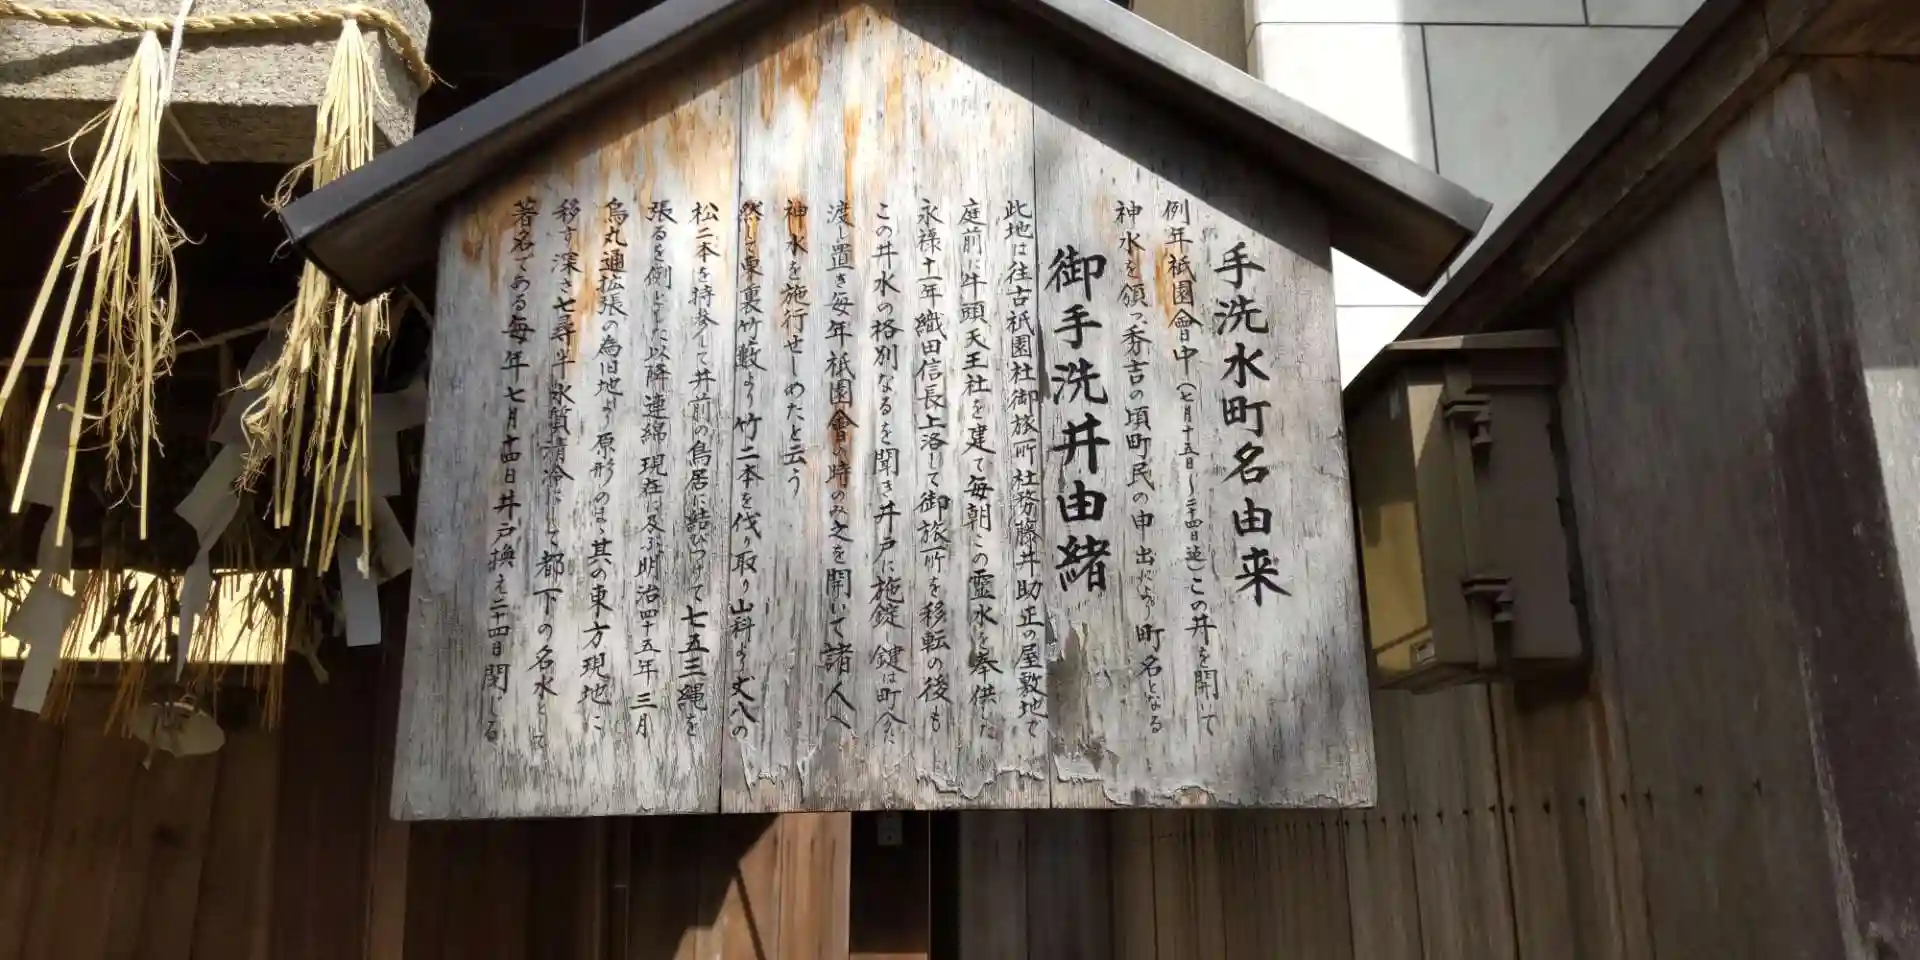 手洗水町名由来
例年祇園會中(七月十五日〜二十四日迄)この井を開いて
神水を領つ秀吉の頃町民の申出により町名となる
御手洗井由緒
此地は往古祇園社御旅所社務藤井助正の屋敷地で
庭前に牛頭天王社を建て毎朝この霊水を奉供した
永禄十一年織田信長上洛して御旅所を移転の後も
この井水の格別なるを聞き井戸に施錠し鍵は町へ
渡し置き毎年祇園會の時のみ之を開いて諸人へ
神水を施行せしめたと云う
然して東裏竹藪より竹二本を伐り取り山科より丈八の
松二本を持参して井前の鳥居に結びつけて七五三縄を
張るを例とした以降連綿現在に及ぶ明治四十五年三月
烏丸通拡張の為旧地より原形のまゝ其の東方現地に
移す深さ七尋半水質清冷にして都下の名水として
著名である毎年七月十四日井戸換え二十四日閉じる